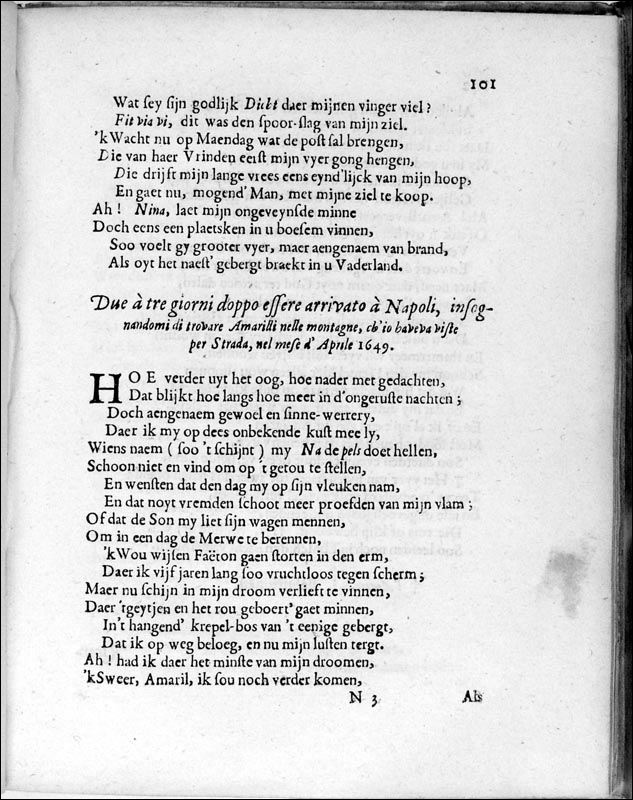 101
Wat sey sijn godlijk Dicht daer mijnen vinger viel?
Fit via vi, dit was den spoor-slag van mijn ziel.
'kWacht nu op Maendag wat de post sal brengen,
Die van haer Vrinden eerst mijn vyer gong hengen,
Die drijft mijn lange vrees eens eynd'lijck van mijn hoop,
En gaet nu, mogend' Man, met mijne ziel te koop.
Ah! Nina, laet mijn ongeveynsde minne
Doch eens een plaetsken in u boesem vinnen,
Soo voelt gy grooter vyer, maer aengenaem van brand,
Als oyt het naest' gebergt braekt in u Vaderland.
Due à tre giorni doppo essere arrivato à Napoli, insog-
nandomi di trovare Amarilli nelle montagne, ch'io haveva viste
per Strada, nel mese d' Aprile 1649.
HOE verder uyt het oog, hoe nader met gedachten,
Dat blijkt hoe langs hoe meer in d'ongeruste nachten;
Doch aengenaem gewoel en sinne-werrery,
Daer ik my op dees onbekende kust mee ly,
Wiens naem (soo 't schijnt) my Na de pels doet hellen,
Schoon niet en vind om op 't getou te stellen,
En wensten dat den dag my op sijn vleuken nam,
En dat noyt vremden schoot meer proefden van mijn vlam;
Of dat de Son my liet sijn wagen mennen,
Om in een dag de Merwe te berennen,
'kWou wijsen Faëton gaen storten in den erm,
Daer ik vijf jaren lang soo vruchtloos tegen scherm;
Maer nu schijn in mijn droom verlieft te vinnen,
Daer 'tgeytjen en het rou geboert' gaet minnen,
In't hangend' krepel-bos van 't eenige gebergt,
Dat ik op weg beloeg, en nu mijn lusten tergt.
Ah! had ik daer het minste van mijn droomen,
'kSweer, Amaril, ik sou noch verder komen,
N 3 Als